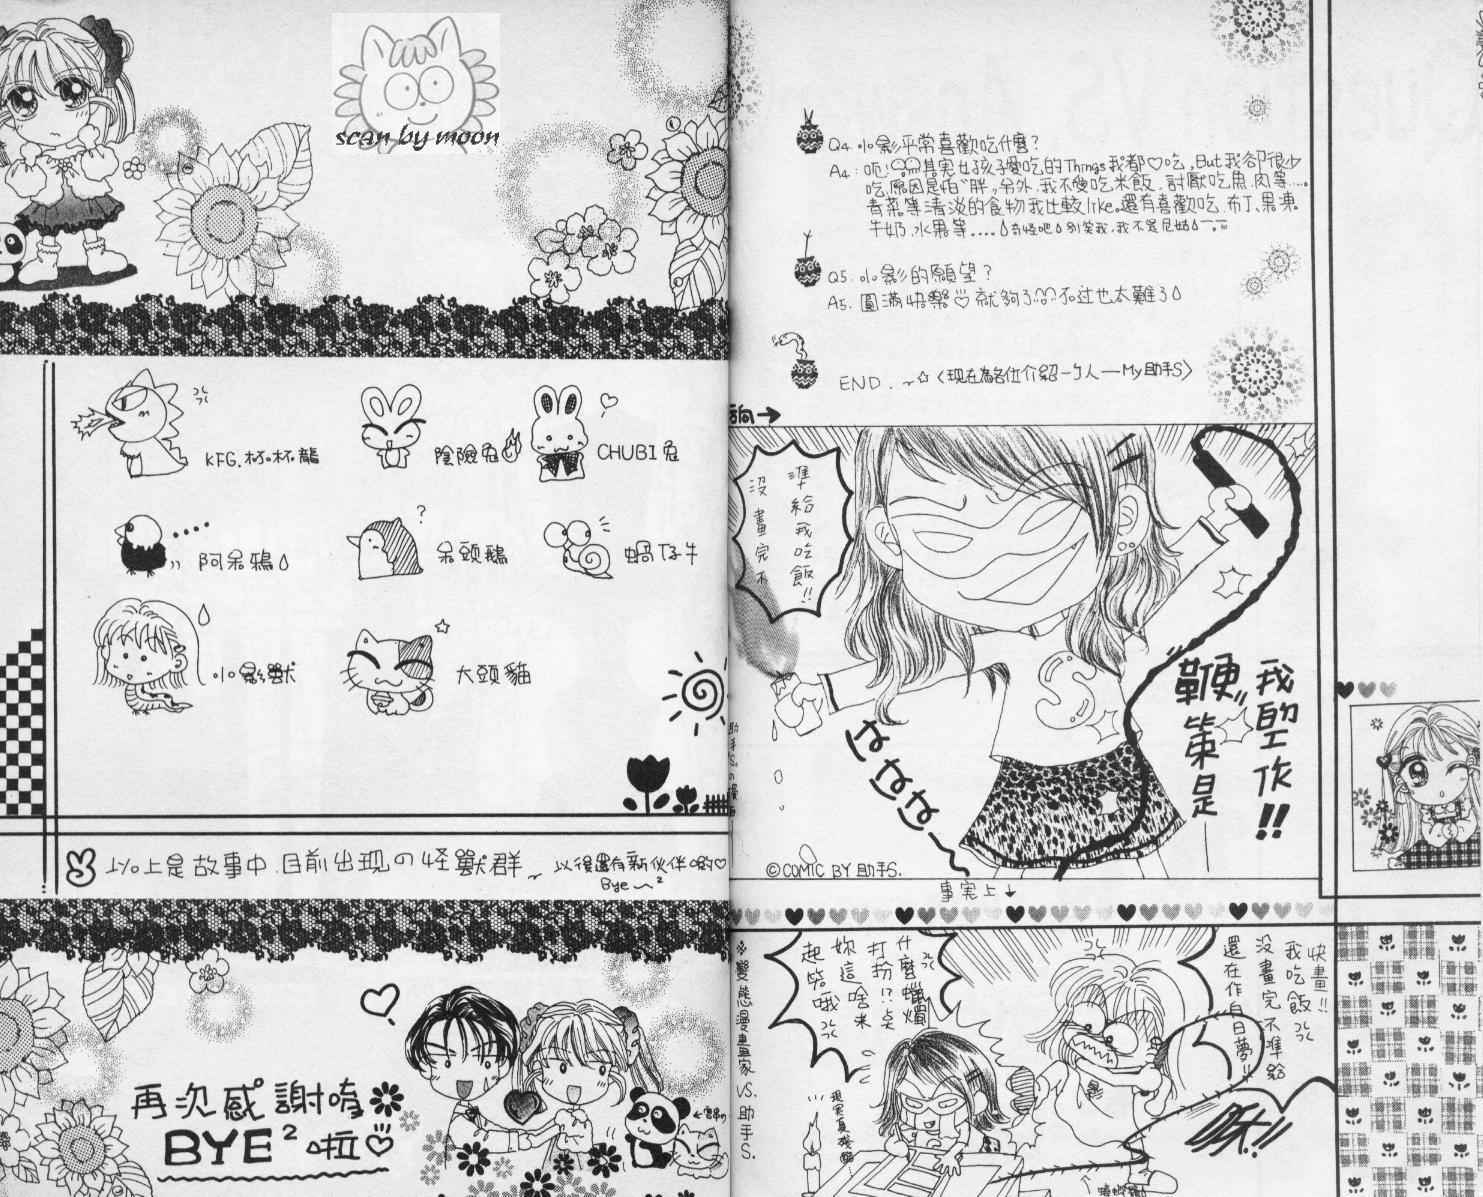 scan by moon
KFG.杯杯龍
陰險兔
CHUBI兔
阿呆鴉
呆頭鵝
蝸仔牛
小影獸
大頭貓
以上是故事中.目前出現の怪獸群~
以後還有新伙伴喲♡
Bye~²
再次感謝唷
BYE²啦
Q4.小影平常喜歡吃什麼?
A4:呃!其実女孩子愛吃的Things我都♡吃,But我卻很少
吃,原因是怕"胖",另外,我不愛吃米飯.討厭吃魚.肉等....
青菜等清淡的食物我比較like。還有喜歡吃.布丁、果凍
牛奶.水果等....奇怪吧 別笑我,我不是尼姑
Q5.小影的願望?
A5.圓滿快樂♡就夠了 不过也太難了
END.~☆〈現在為各位介紹一個人—My助手S〉
→
沒畫完不
準給我吃飯!!
我的工作!!
鞭策是—
ははは~
©COMIC BY 助手S.
事実上↓
※變態漫畫家 VS.助手S.
什麼蠟燭
打扮!?
妳這啥米
起笑哦
快畫!!
我吃飯
沒畫完不準給
還在作白日夢!!